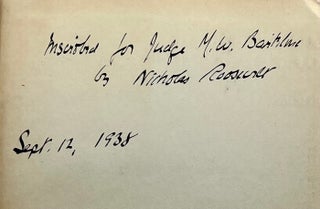 Inscribed for Judge M. W.
by Nicholas Roosevelt
Sept. 12, 1938